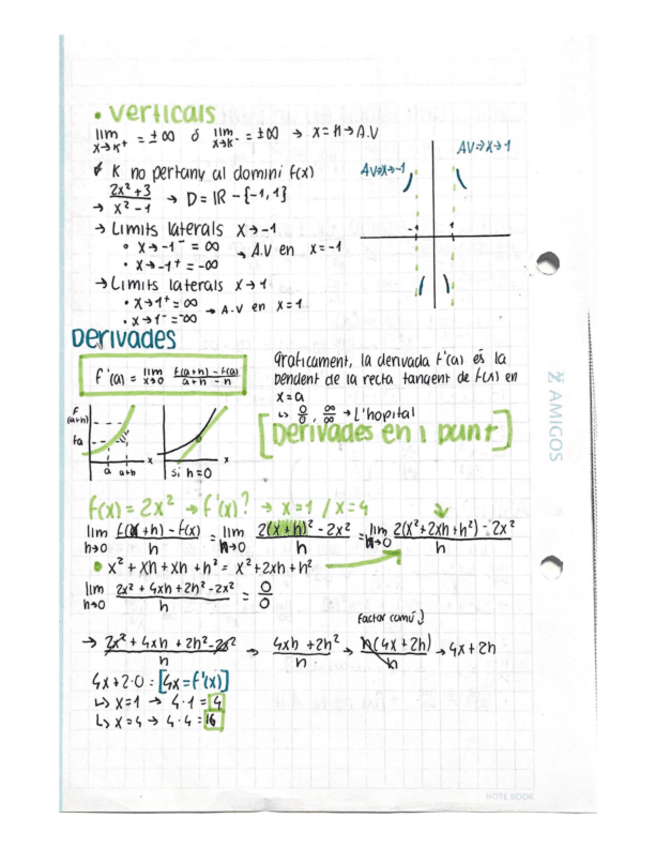 • Verticals
lim x→K⁺ = ±∞ ó lim x→K⁻ = ±∞ → x = K → A.V
K no pertany al domini f(x)
→ 2x²+3 / x²-1 → D = IR - {-1, 1}
→ Limits laterals x→-1
• x→-1⁻ = ∞
→ A.V en x=-1
• x→-1⁺ = -∞
→ Limits laterals x→1
• x→1⁺ = ∞
→ A.V en x=1
• x→1⁻ = -∞
AV⇒x→-1
AV⇒x→1
-1 1
Derivades
f'(a) = lim x→0 f(a+h) - f(a) / a+h - h
Graficament, la derivada f'(a) és la
pendent de la recta tangent de f(x) en
x=a
↳ 0/0, ∞/∞ → L'hopital
[Derivades en 1 punt]
f(a+h)
fa
a a+h x
si h=0 x
f(x) = 2x² → f'(x)? → x=1 / x=4
lim h→0 f(x+h) - f(x) / h = lim h→0 2(x+h)² - 2x² / h = lim h→0 2(x²+2xh+h²) - 2x² / h
• x² + xh + xh + h² = x²+2xh+h²
lim h→0 2x² + 4xh + 2h² - 2x² / h = 0/0
Factor comú
→ 2x² + 4xh + 2h² - 2x² / h → 4xh + 2h² / h → h(4x+2h) / h → 4x+2h
4x+2·0 = [4x = f'(x)]
↳ x=1 → 4·1 = 4
↳ x=4 → 4·4 = 16
AMIGOS
NOTE BOOK